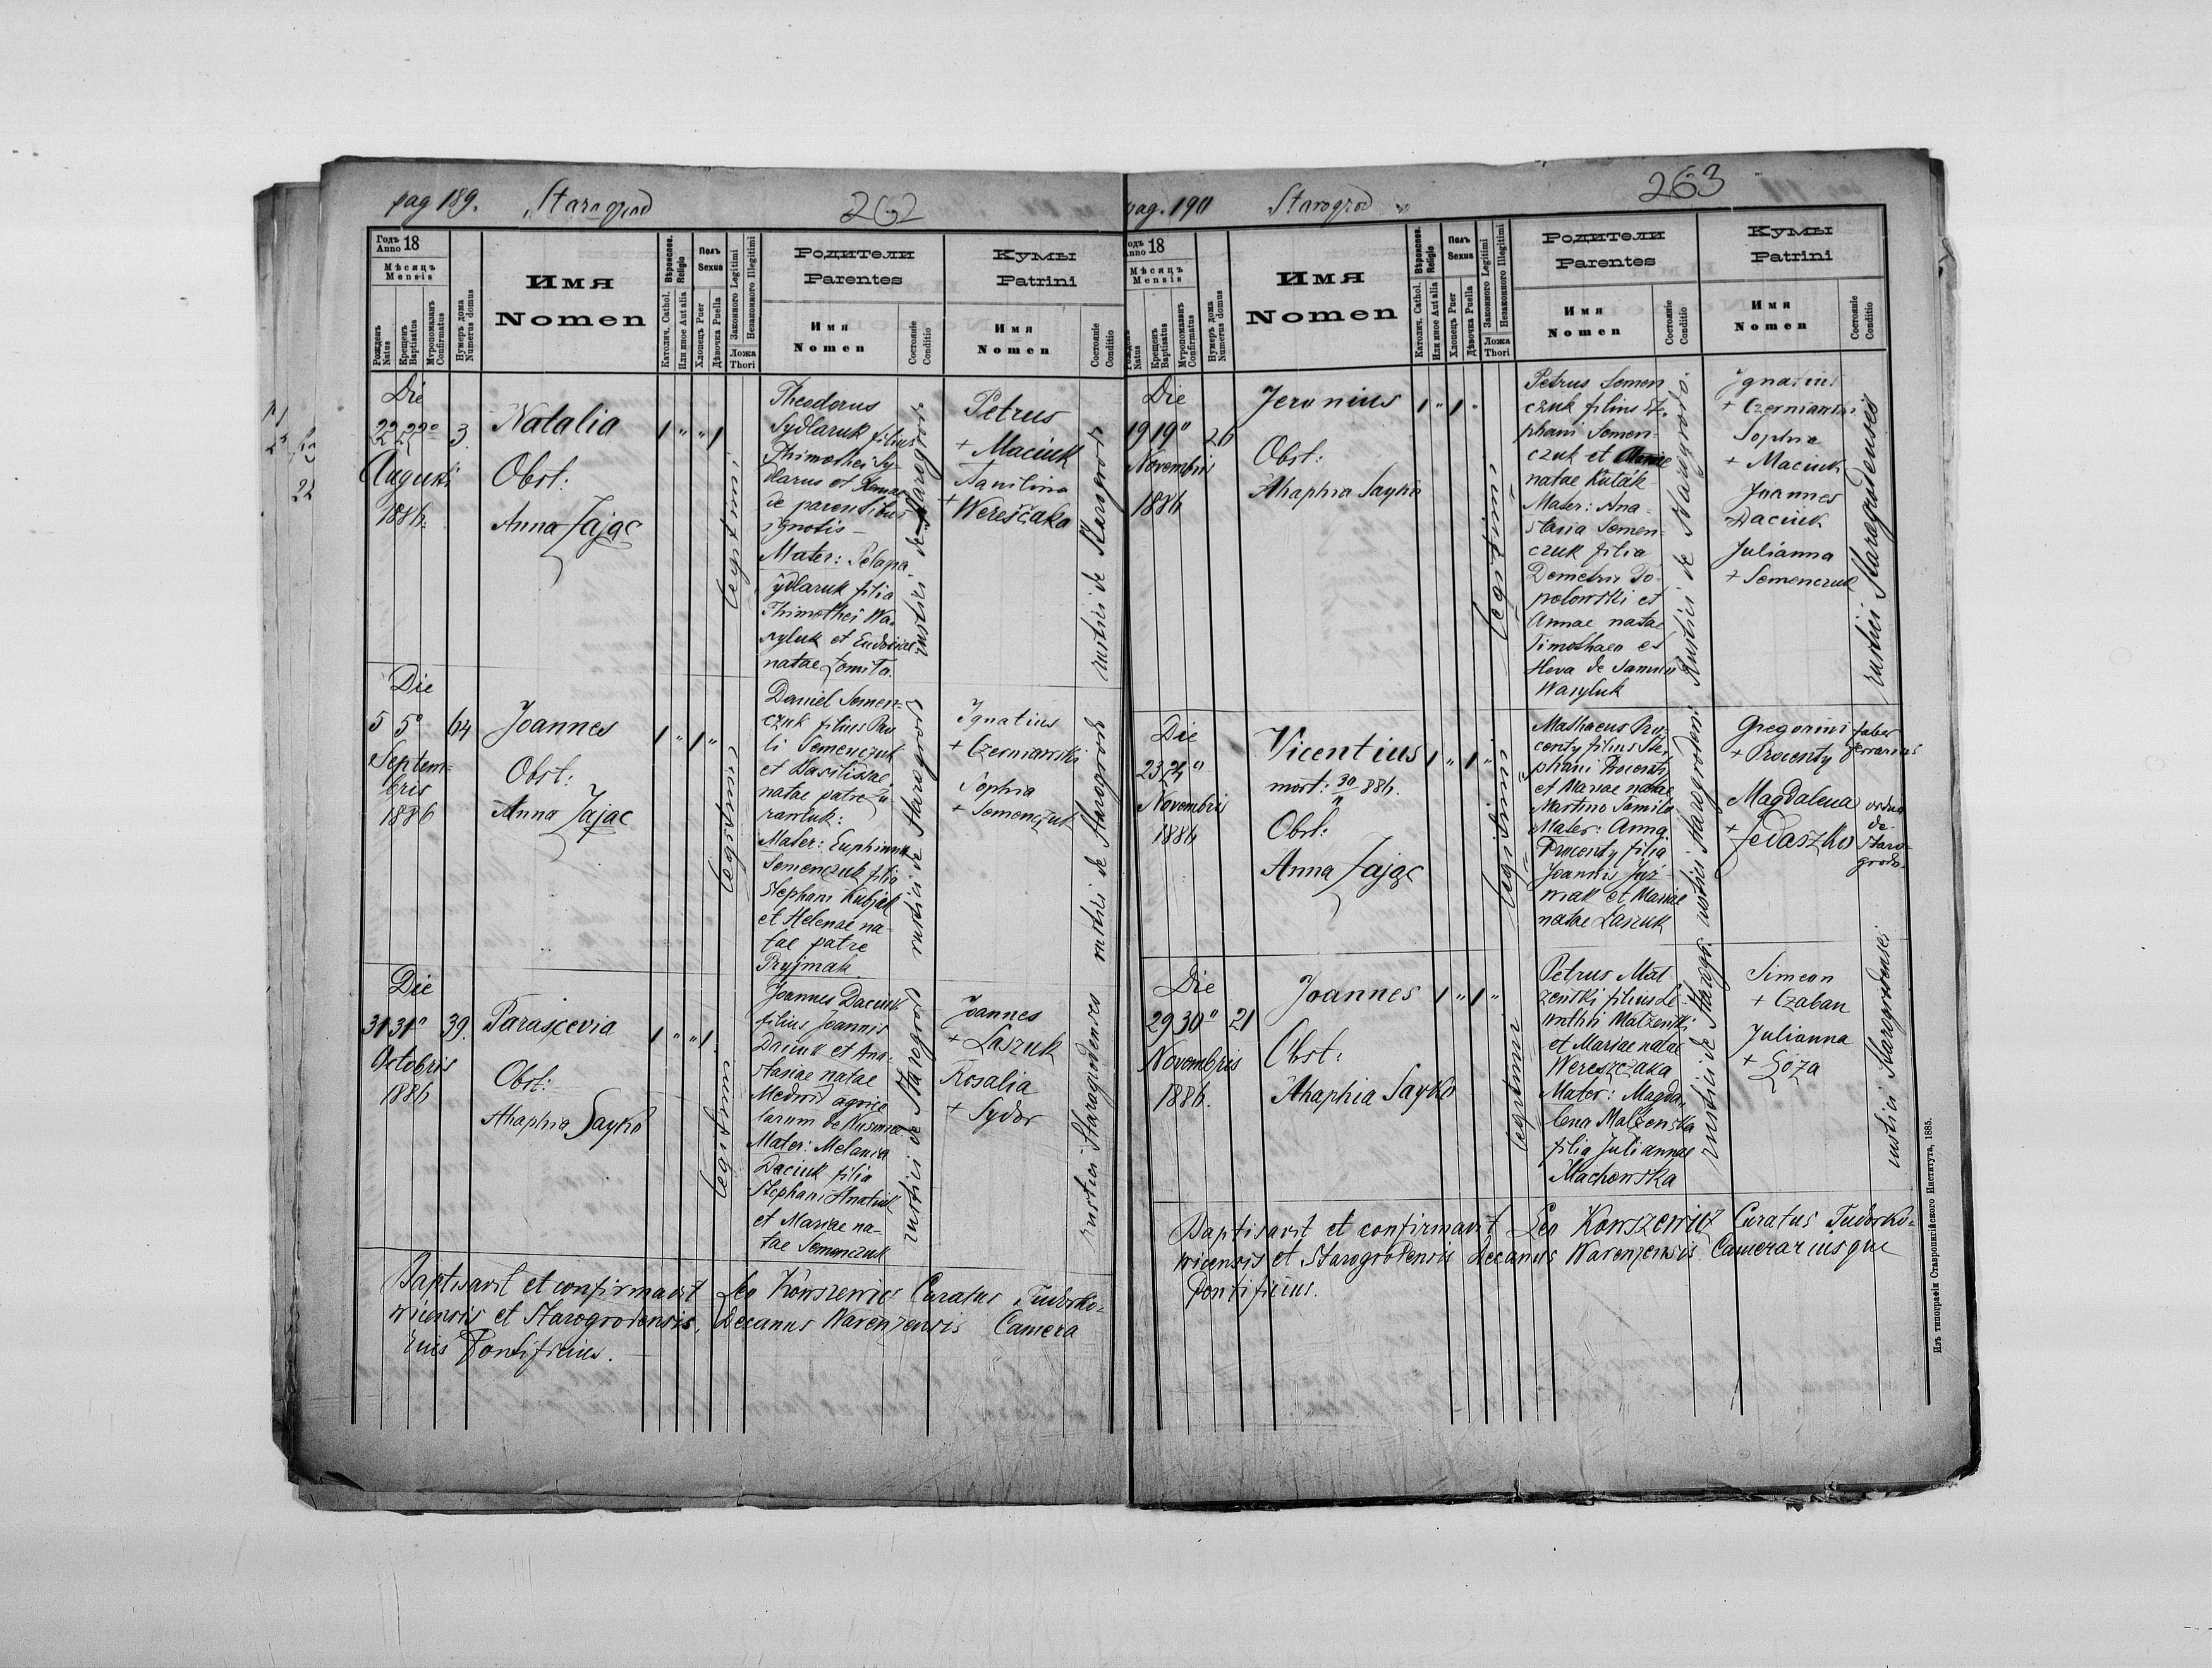 pag 189. Starogrod 262
Годъ Anno 18
Мѣсяцъ Mensis
Рожденъ Natus
Крещенъ Baptisatus
Мѵропомазанъ Confirmatus
Нумеръ дома Numerus domus
Имя Nomen
Вѣроисповѣд. Religio
Католич. Cathol.
Или иное Aut alia
Полъ Sexus
Хлопецъ Puer
Дѣвочка Puella
Законного Legitimi
Незаконного Illegitimi
Ложа Thori
Родители Parentes
Имя Nomen
Состояніе Conditio
Кумы Patrini
Имя Nomen
Состояніе Conditio
Die
22 22° 3.
Augusti
1886.
Natalia
Obst:
Anna Zając
1 " " 1
legitimi
Theodorus
Sydlaruk filius
Thimothei Sy-
dlaruk et
de parentibus
ignotis –
Mater: Pelagia
Sydlaruk filia
Thimothei Wa-
syluk et Eudoxiae
natae Łomita.
rustici de Starogrod
Petrus
+ Maciuk
Aquilina
+ Wereščaka
rustici de Starogrod
Die
5 5° 64
Septem-
bris
1886
Joannes
Obst:
Anna Zając
1 " 1 "
legitimi
Daniel Semen-
czuk filius Pau
li Semenczuk
et Vasilissae
natae patre Žu
rawluk:
Mater: Euphimia
Semenczuk filia
Stephani Kubjak
et Helenae na-
tae patre
Pryjmak
rustici de Starogrod
Ignatius
+ Czernianski
Sophia
+ Semenczuk
rustici de Starogrod
Die
31 31° 39.
Octobris
1886
Parascevia
Obst:
Ahaphia Sayko
1 " " 1.
legitimi
Joannes Daciuk
filius Joannis
Daciuk et Ana-
stasiae natae
Medwid agrico
larum de
Mater: Melania
Daciuk filia
Stephani Hnatiuk
et Mariae na-
tae Semenczuk
rustici de Starogrod
Joannes
+ Laszuk
Rosalia
+ Sydor
rustici Starogrodenses
Baptisavit et confirmavit Leo Kowszewicz Curatus Tudorko-
wicensis et Starogrodensis, Decanus Warenzensis Camera
rius Pontificius.
pag. 190 Starogrod 263
Годъ Anno 18
Мѣсяцъ Mensis
Рожденъ Natus
Крещенъ Baptisatus
Мѵропомазанъ Confirmatus
Нумеръ дома Numerus domus
Имя Nomen
Вѣроисповѣд. Religio
Католич. Cathol.
Или иное Aut alia
Полъ Sexus
Хлопецъ Puer
Дѣвочка Puella
Законного Legitimi
Незаконного Illegitimi
Ложа Thori
Родители Parentes
Имя Nomen
Состояніе Conditio
Кумы Patrini
Имя Nomen
Состояніе Conditio
Die
19 19° 26
Novembris
1886
Jeronius
Obst:
Ahaphia Sayko
1 " 1 "
legitimi
Petrus Semen
czuk filius Ste-
phani Semen-
czuk et Mariae
natae Kulák
Mater: Ana-
stasia Semen-
czuk filia
Demetrii To-
polowski et
Annae natae
Timothaeo et
Heva de
Wasyluk
Rustici de Starogrodo.
Ignatius
+ Czernianski
Sophia
+ Maciuk
Joannes
Daciuk
Julianna
+ Semenczuk
rustici Starogrodenses
Die
23 24°
Novembris
1886
Vicentius
mort: 30/11 886.
Obst:
Anna Zając
1 " 1 "
legitimi
Mathaeus Pro-
centy filius Ste-
phani Procenty
et Mariae natae
Martino Samiło
Mater: Anna
Procenty filia
Joannis Juź-
wiak et Mariae
natae Laszuk
rustici Starogrodensi
Gregorius faber
+ Procenty ferrarius
Magdalena vidua
+ Fedaszko de
Staro-
grodo.
Die
29 30° 21
Novembris
1886.
Joannes
Obst:
Ahaphia Sayko
1 " 1 "
legitimi
Petrus Mal-
żeński filius Le-
onthii Malżenski
et Mariae natae
Wereszczaka
Mater: Magda-
lena Malżenska
filia Juliannae
Machowska
rustici de Starogr.
Simeon
+ Czaban
Julianna
+ Łoza
rustici Starogrodenses
Baptisavit et confirmavit Leo Kowszewicz Curatus Tudorko-
wicensis et Starogrodensis Decanus Warenzensis Camerariusque
Pontificius.
Изъ типографіи Ставропигійского Института, 1885.